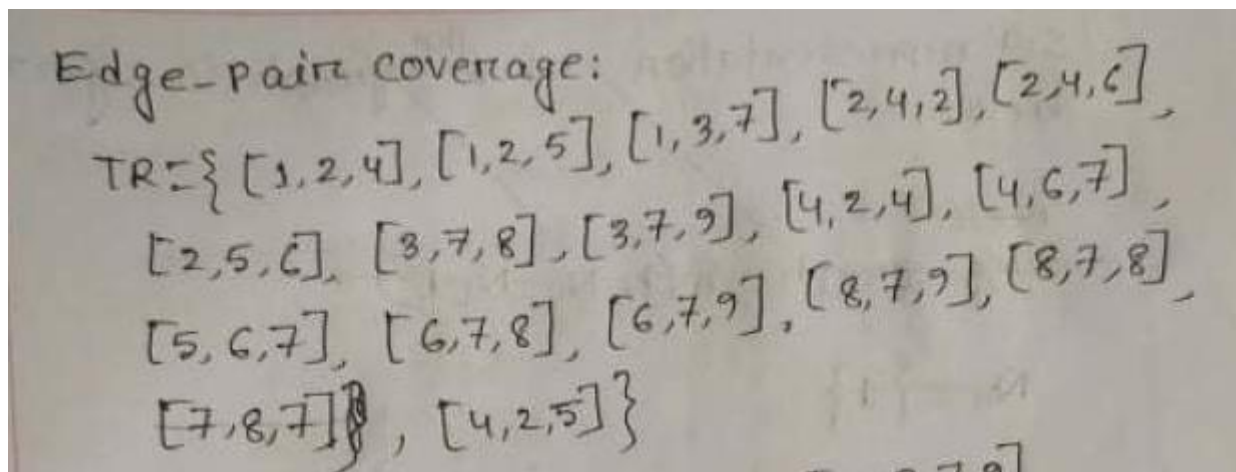 Edge-pair coverage:
TR={ [1,2,4], [1,2,5], [1,3,7], [2,4,2], [2,4,6],
[2,5,6], [3,7,8], [3,7,9], [4,2,4], [4,6,7],
[5,6,7], [6,7,8], [6,7,9], [8,7,9], [8,7,8],
[7,8,7], [4,2,5]}
7,9]